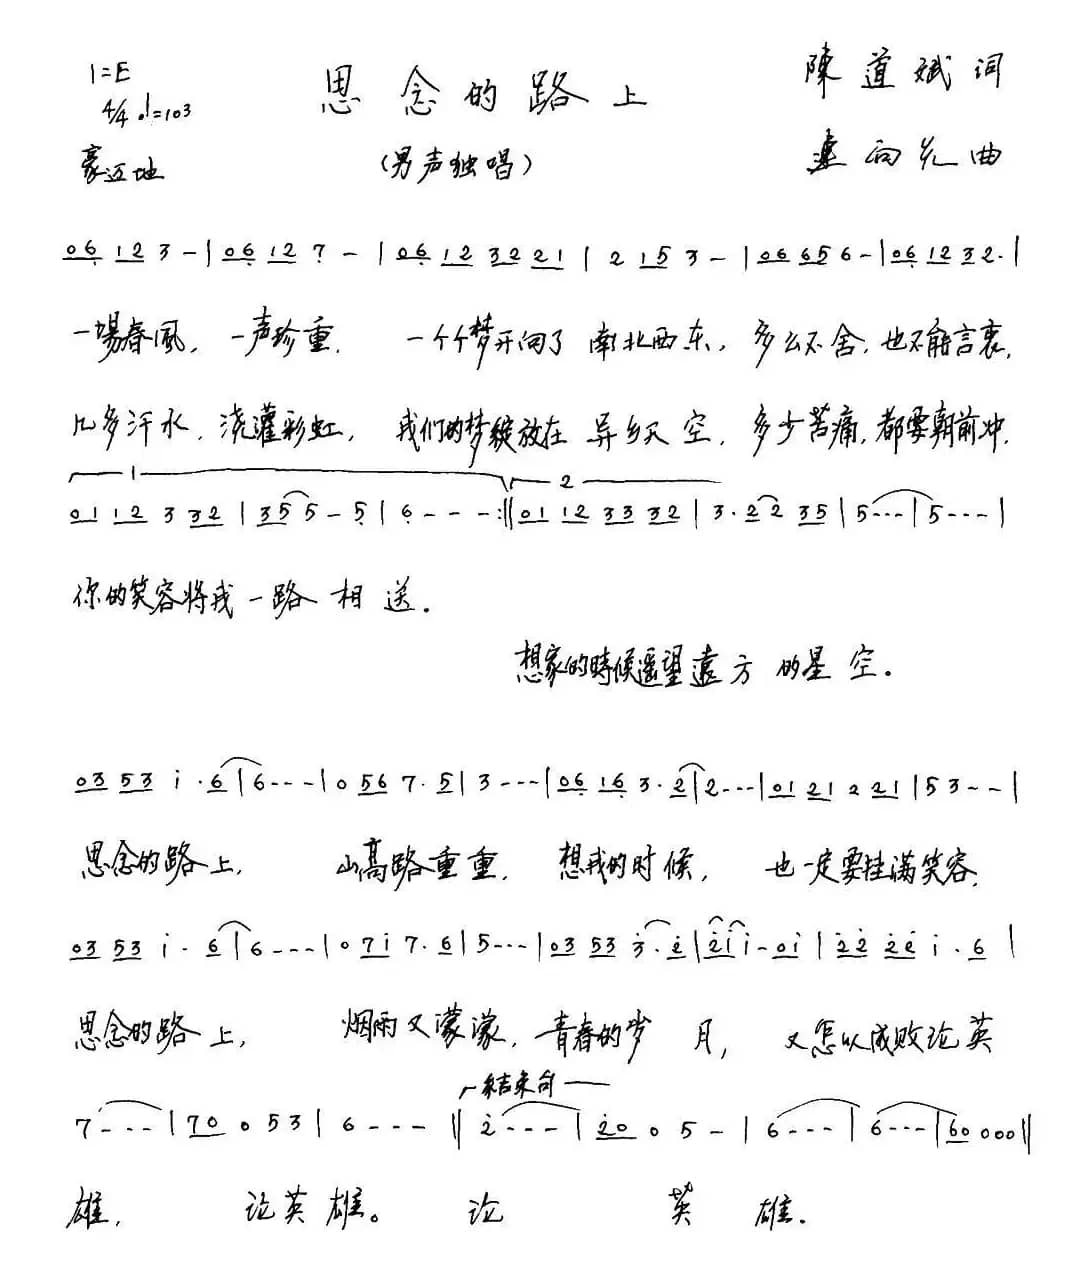 1=E
4/4 ♩=103
思念的路上
陳道斌词
豪迈地
(男声独唱)
曲
06 12 3 - | 06 12 7 - | 06 12 32 21 | 2 15 3 - | 06 65 6 - | 06 12 32. |
一場春風，一声珍重. 一个个梦开向了南北西东，多么不舍，也不能言衷，
几多汗水，浇灌彩虹，我们的梦绽放在异乡天空，多少苦痛，都要朝前冲，
1 2
01 12 3 32 | 35 5 - 5 | 6 - - - :|| 01 12 33 32 | 3. 22 35 | 5 - - - | 5 - - - |
你的笑容将我一路相送.
想家的時候遥望遠方的星空.
03 53 i . 6 | 6 - - - | 0 56 7. 5 | 3 - - - | 06 16 3. 2 | 2 - - - | 01 21 2 21 | 5 3 - - |
思念的路上, 山高路重重, 想我的时候, 也一定要挂满笑容,
03 53 i . 6 | 6 - - - | 0 7i 7. 6 | 5 - - - | 03 53 3. 2 | 2i i - 0i | 22 22 i . 6 |
思念的路上, 烟雨又濛濛, 青春的岁月, 又怎以成败论英
结束句
7 - - - | 70 0 5 3 | 6 - - - || 2 - - - | 20 0 5 - | 6 - - - | 6 - - - | 60 0 0 0 ||
雄, 论英雄。 论 英 雄.